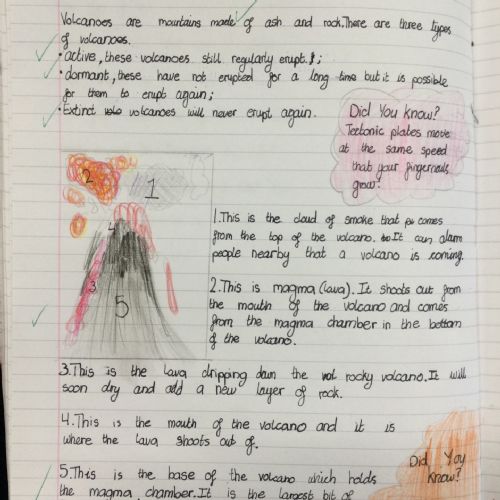 Volcanoes are mountains made of ash and rock. There are three types
of volcanoes.
• active, these volcanoes still regularly erupt;
• dormant, these have not erupted for a long time but it is possible
for them to erupt again;
• Extinct volcanoes will never erupt again.
Did You Know?
Tectonic plates move
at the same speed
that your fingernails
grow!
2
1
4
3
5
1. This is the cloud of smoke that comes
from the top of the volcano. It can alarm
people nearby that a volcano is coming.
2. This is magma (lava). It shoots out from
the mouth of the volcano and comes
from the magma chamber in the bottom
of the volcano.
3. This is the lava dripping down the rocky volcano. It will
soon dry and add a new layer of rock.
4. This is the mouth of the volcano and it is
where the lava shoots out of.
Did You
Know?
5. This is the base of the volcano which holds
the magma chamber. It is the largest bit of